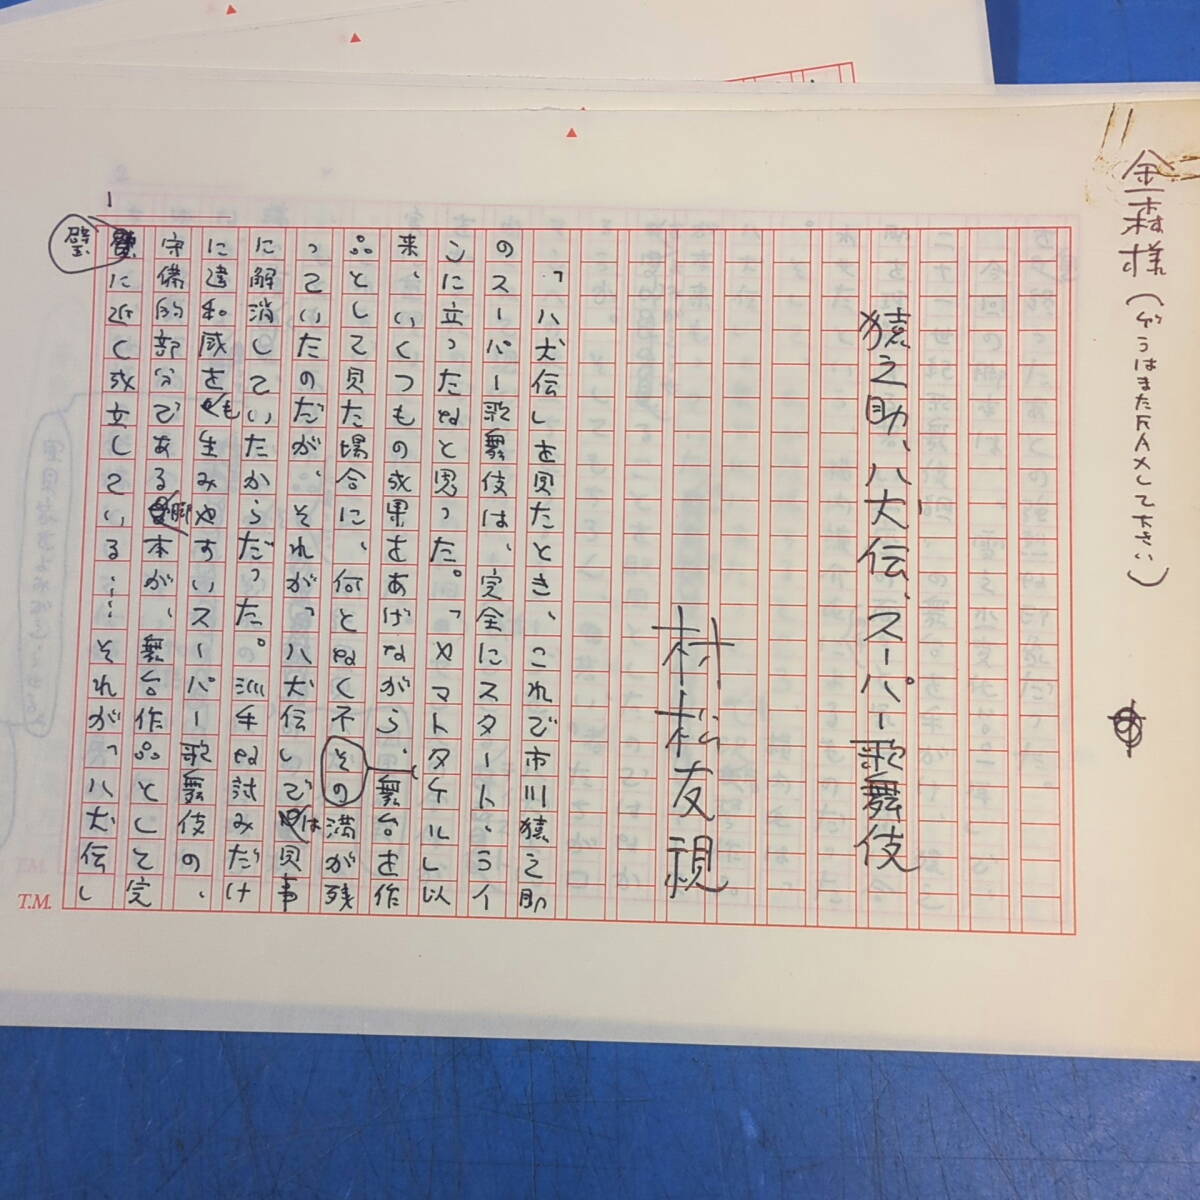 金森様（ゲラはまたFAXして下さい）
猿之助、八犬伝、スーパー歌舞伎
村松友視
「八犬伝」を見たとき、これで市川猿之助
のスーパー歌舞伎は、完全にスタート・ライ
ンに立ったなと思った。「ヤマトタケル」以
来、いくつもの成果をあげながら、その舞台を作
品として見た場合に、何となく不満が残
っていたのだが、それが「八犬伝」では見事
に解消していたからだった。派手な試みだけ
に違和感をも生みやすいスーパー歌舞伎の、
守備的部分である脚本が、舞台作品として完
璧に近く成立している……それが「八犬伝」
1
T.M.